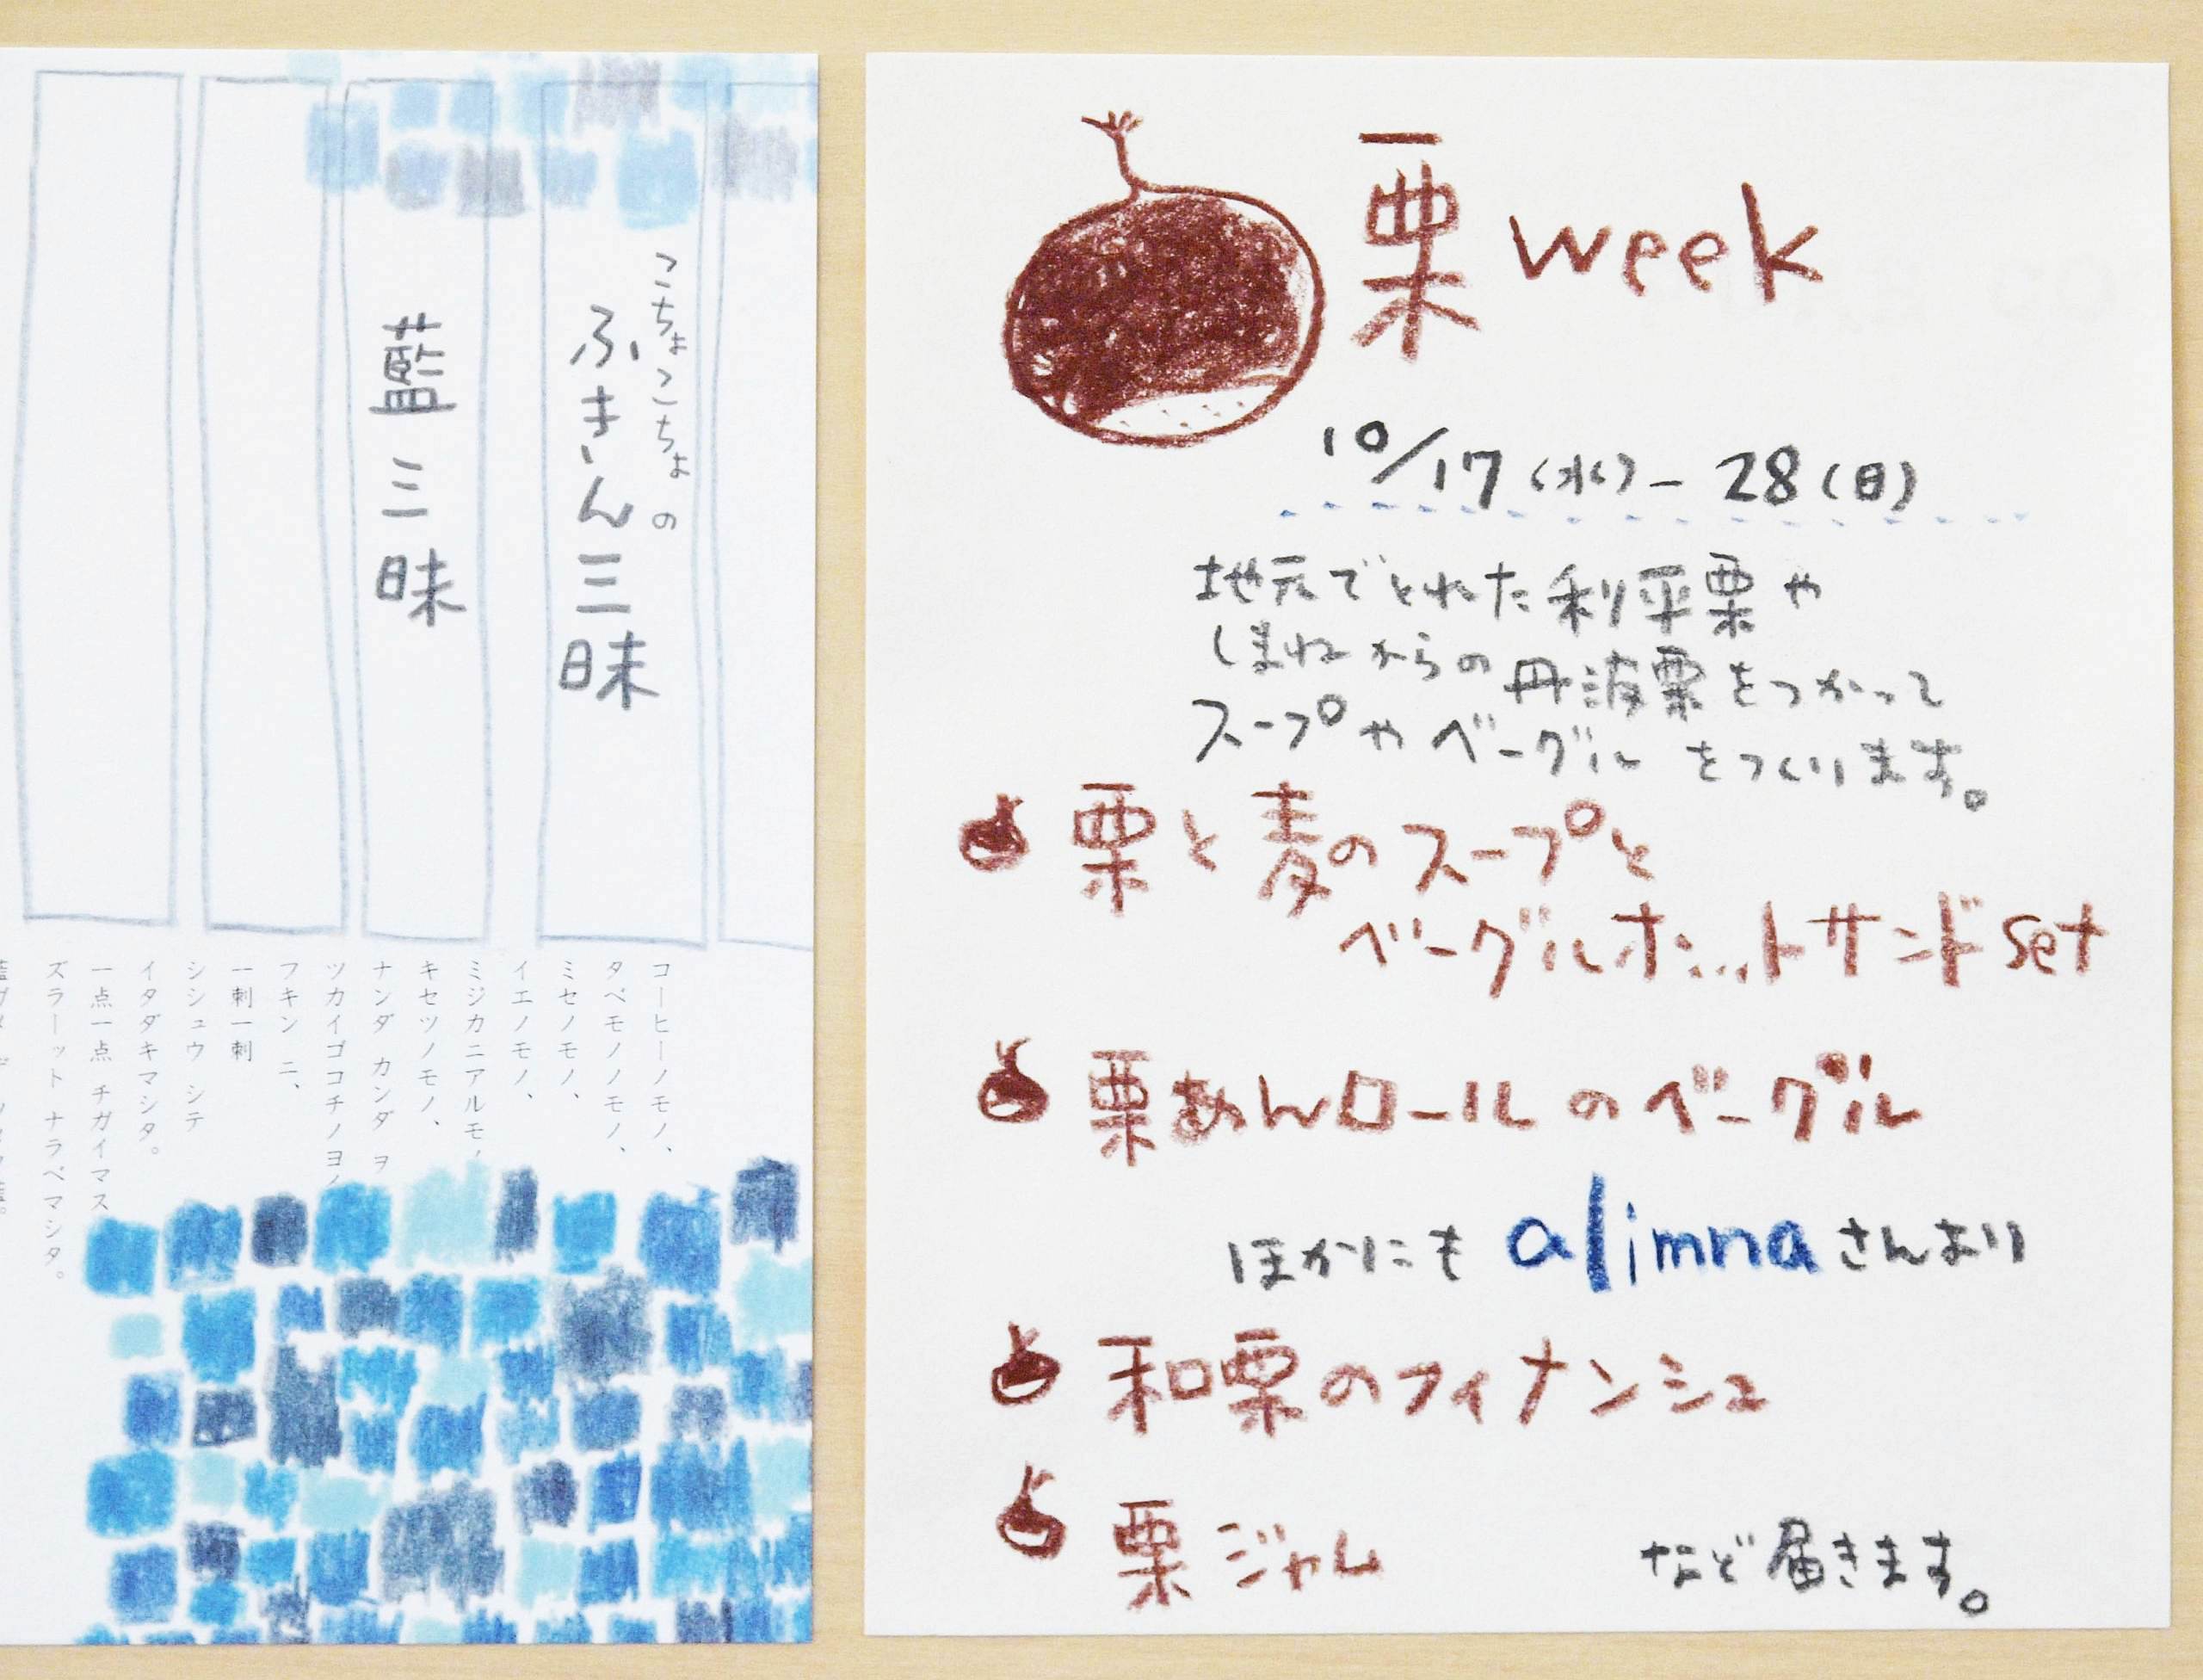 こちょこちょの
ふきん三昧
藍三昧
コーヒーノモノ、
タベモノノモノ、
ミセノモノ、
イエノモノ、
ミジカニアルモノ
キセツノモノ、
ナンダ カンダ ヲ
ツカイゴコチノヨイ
フキン ニ、
一刺一刺
シシュウ シテ
イタダキマシタ。
一点一点 チガイマス
ズラーット ナラベマシタ。
栗 week
10/17(水)- 28(日)
地元でとれた利平栗や
しまねからの丹波栗をつかって
スープやベーグルをつくります。
栗と麦のスープと
ベーグルホットサンドset
栗あんロールのベーグル
ほかにも alimna さんより
和栗のフィナンシェ
栗ジャム
など届きます。